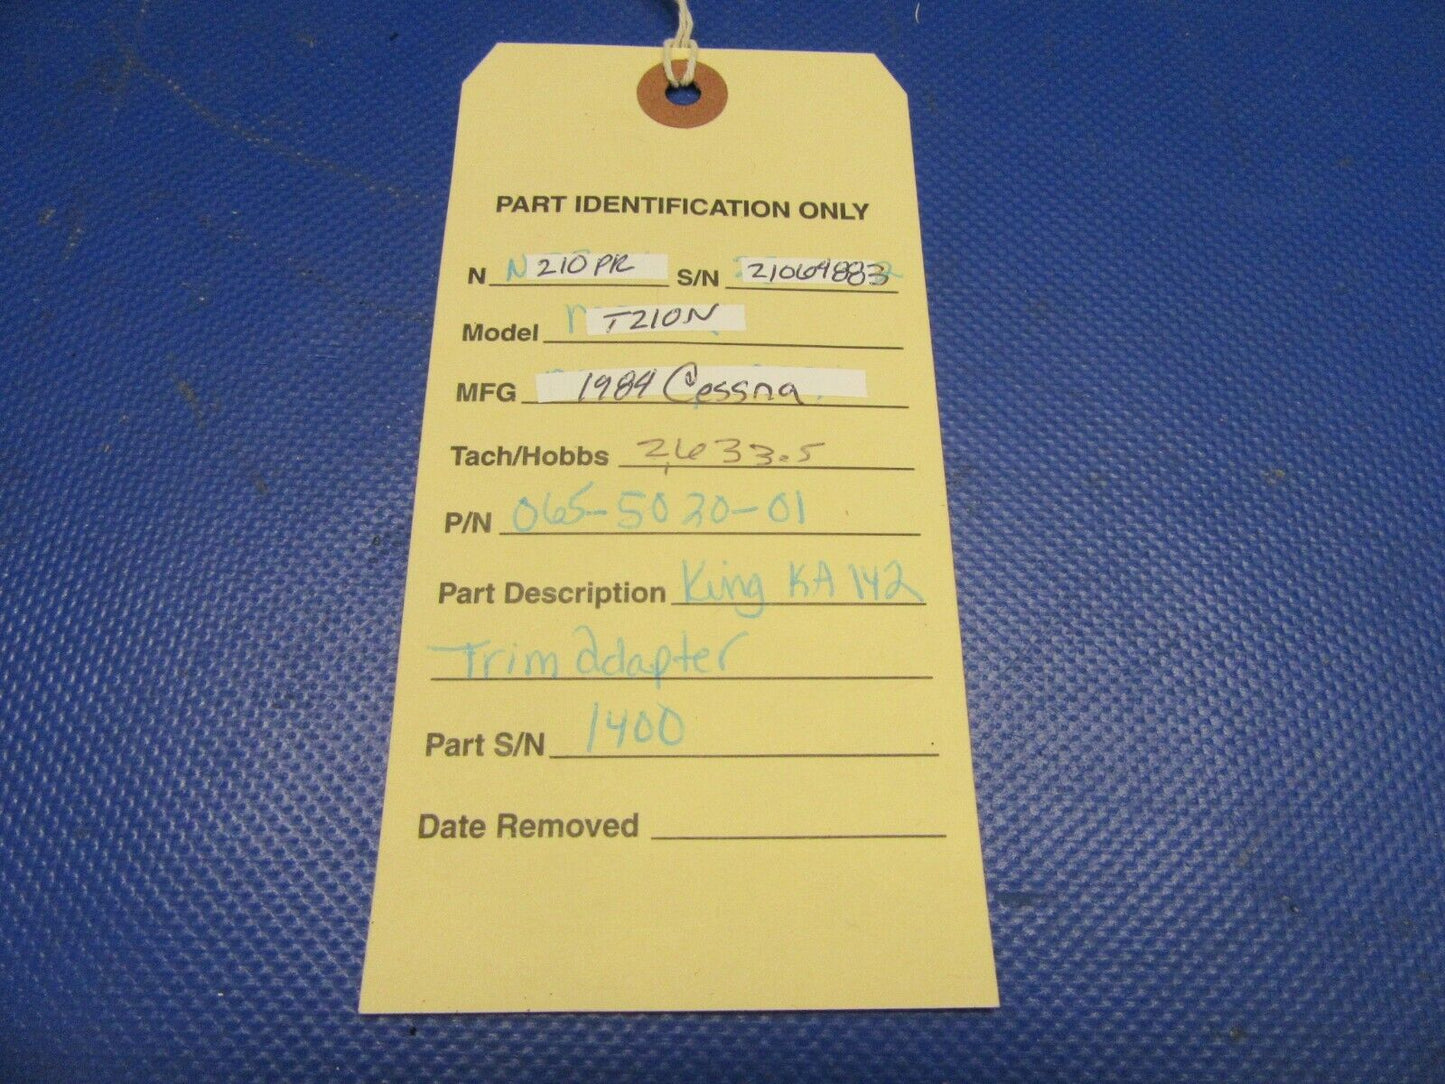 PART IDENTIFICATION ONLY
N N210PR S/N 21064883
Model T210N
MFG 1984 Cessna
Tach/Hobbs 2633.5
P/N 065-5020-01
Part Description King KA 142
Trim adapter
Part S/N 1400
Date Removed